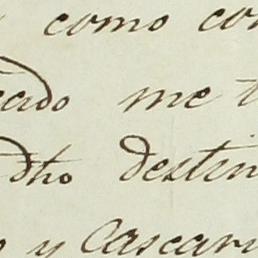 como con
cado me t
dho destin
y Cascari